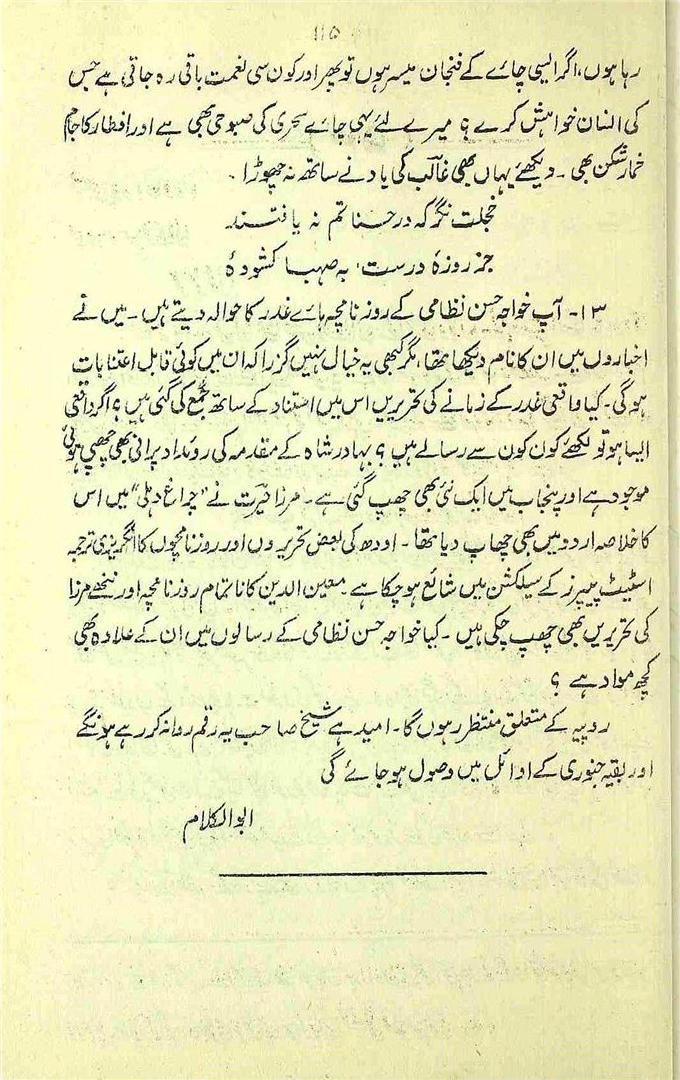 ۱۱۵
رہا ہوں، اگر ایسی چائے کے فنجان میسر ہوں تو پھر اور کون سی نعمت باقی رہ جاتی ہے جس
کی انسان خواہش کرے؟ میرے لئے یہی چائے سحری کی صبوحی بھی ہے اور افطار کا جام
خمار شکن بھی۔ دیکھئے یہاں بھی غالب کی یاد نے ساتھ نہ چھوڑا۔
خجلت نگر کہ در حسناتم نہ یافتند
جز روزۂ درست بہ صہبا کشودۂ
۱۳۔ آپ خواجہ حسن نظامی کے روزنامچہ ہائے غدر کا حوالہ دیتے ہیں۔ میں نے
اخباروں میں ان کا نام دیکھا تھا، مگر کبھی یہ خیال نہیں گزرا کہ ان میں کوئی قابل اعتنا بات
ہوگی۔ کیا واقعی غدر کے زمانے کی تحریریں اس میں استناد کے ساتھ جمع کی گئی ہیں؟ اگر واقعی
ایسا ہو تو لکھئے کون کون سے رسالے ہیں؟ بہادر شاہ کے مقدمہ کی روئداد پرانی بھی چھپی ہوئی
موجود ہے اور پنجاب میں ایک نئی بھی چھپ گئی ہے۔ مرزا حیرت نے "چراغ دہلی" میں اس
کا خلاصہ اردو میں بھی چھاپ دیا تھا۔ اودھ کی بعض تحریروں اور روزنامچوں کا انگریزی ترجمہ
اسٹیٹ پیپرز کے سیلکشن میں شائع ہوچکا ہے۔ معین الدین کا ناتمام روزنامچہ اور ننھے مرزا
کی تحریریں بھی چھپ چکی ہیں۔ کیا خواجہ حسن نظامی کے رسالوں میں ان کے علادہ بھی
کچھ مواد ہے؟
روپیہ کے متعلق منتظر رہوں گا۔ امید ہے شیخ صاحب یہ رقم روانہ کر رہے ہونگے
اور بقیہ جنوری کے ادائل میں وصول ہو جائے گی
ابوالکلام